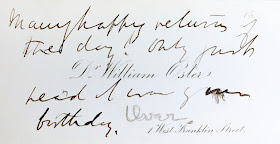 Many happy returns
of the day! Only just
Dr. William Osler.
hea'd it was your
birthday.
Over.
1 West Franklin Street.